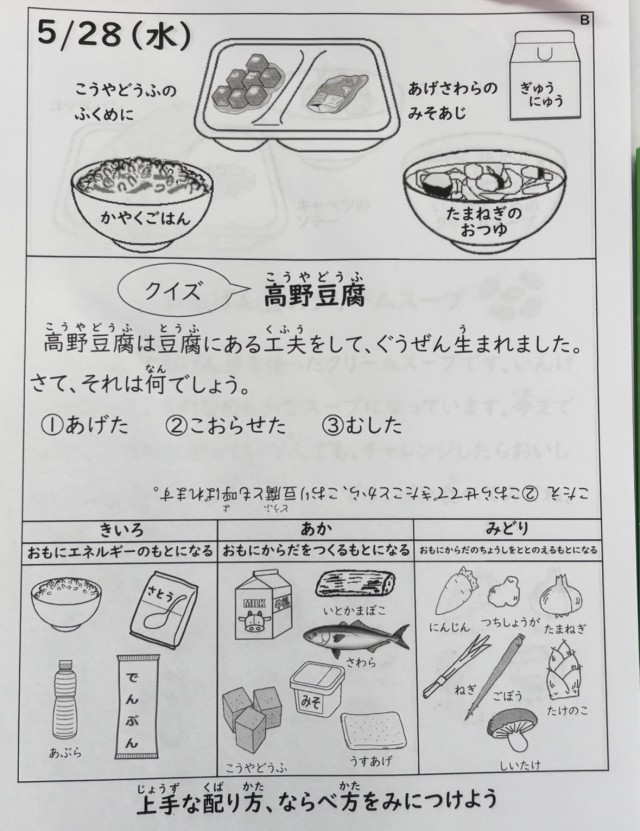 B
5/28(水)
こうやどうふの
ふくめに
あげさわらの
みそあじ
ぎゅう
にゅう
かやくごはん
たまねぎの
おつゆ
クイズ
こうやどうふ
高野豆腐
こうやどうふ とうふ くふう う
高野豆腐は豆腐にある工夫をして、ぐうぜん生まれました。
なん
さて、それは何でしょう。
①あげた ②こおらせた ③むした
こたえ ②こおらせてできたことから、こおり豆腐とも呼ばれます。
どうふ よ
きいろ
おもにエネルギーのもとになる
さとう
あぶら
でんぷん
あか
おもにからだをつくるもとになる
MILK
牛乳
いとかまぼこ
さわら
みそ
こうやどうふ
うすあげ
みどり
おもにからだのちょうしをととのえるもとになる
にんじん
つちしょうが
たまねぎ
ねぎ
ごぼう
たけのこ
しいたけ
じょうず くば かた かた
上手な配り方、ならべ方をみにつけよう